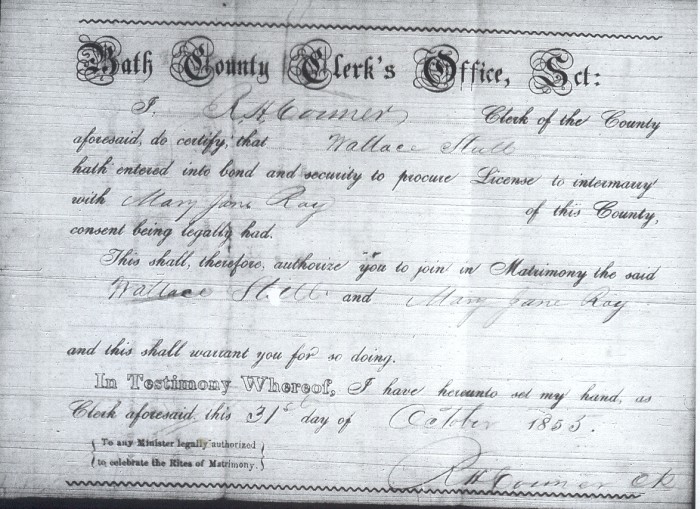 Bath County Clerk's Office, Sct:
I, R H Conner Clerk of the County
aforesaid, do certify, that Wallace Stull
hath entered into bond and security to procure License to intermarry
with Mary Jane Ray of this County,
consent being legally had.
This shall, therefore, authorize you to join in Matrimony the said
Wallace Stull and Mary Jane Ray
and this shall warrant you for so doing.
In Testimony Whereof, I have hereunto set my hand, as
Clerk aforesaid this 31st day of October 1855.
To any Minister legally authorized
to celebrate the Rites of Matrimony.
R H Conner Clk